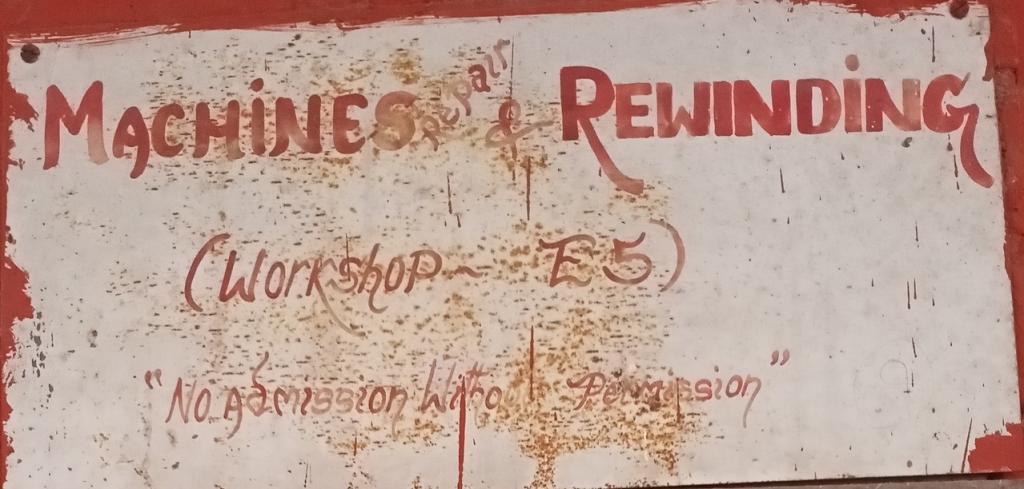 MACHINES Repair & REWINDING
(Workshop - E5)
"No Admission Without Permission"